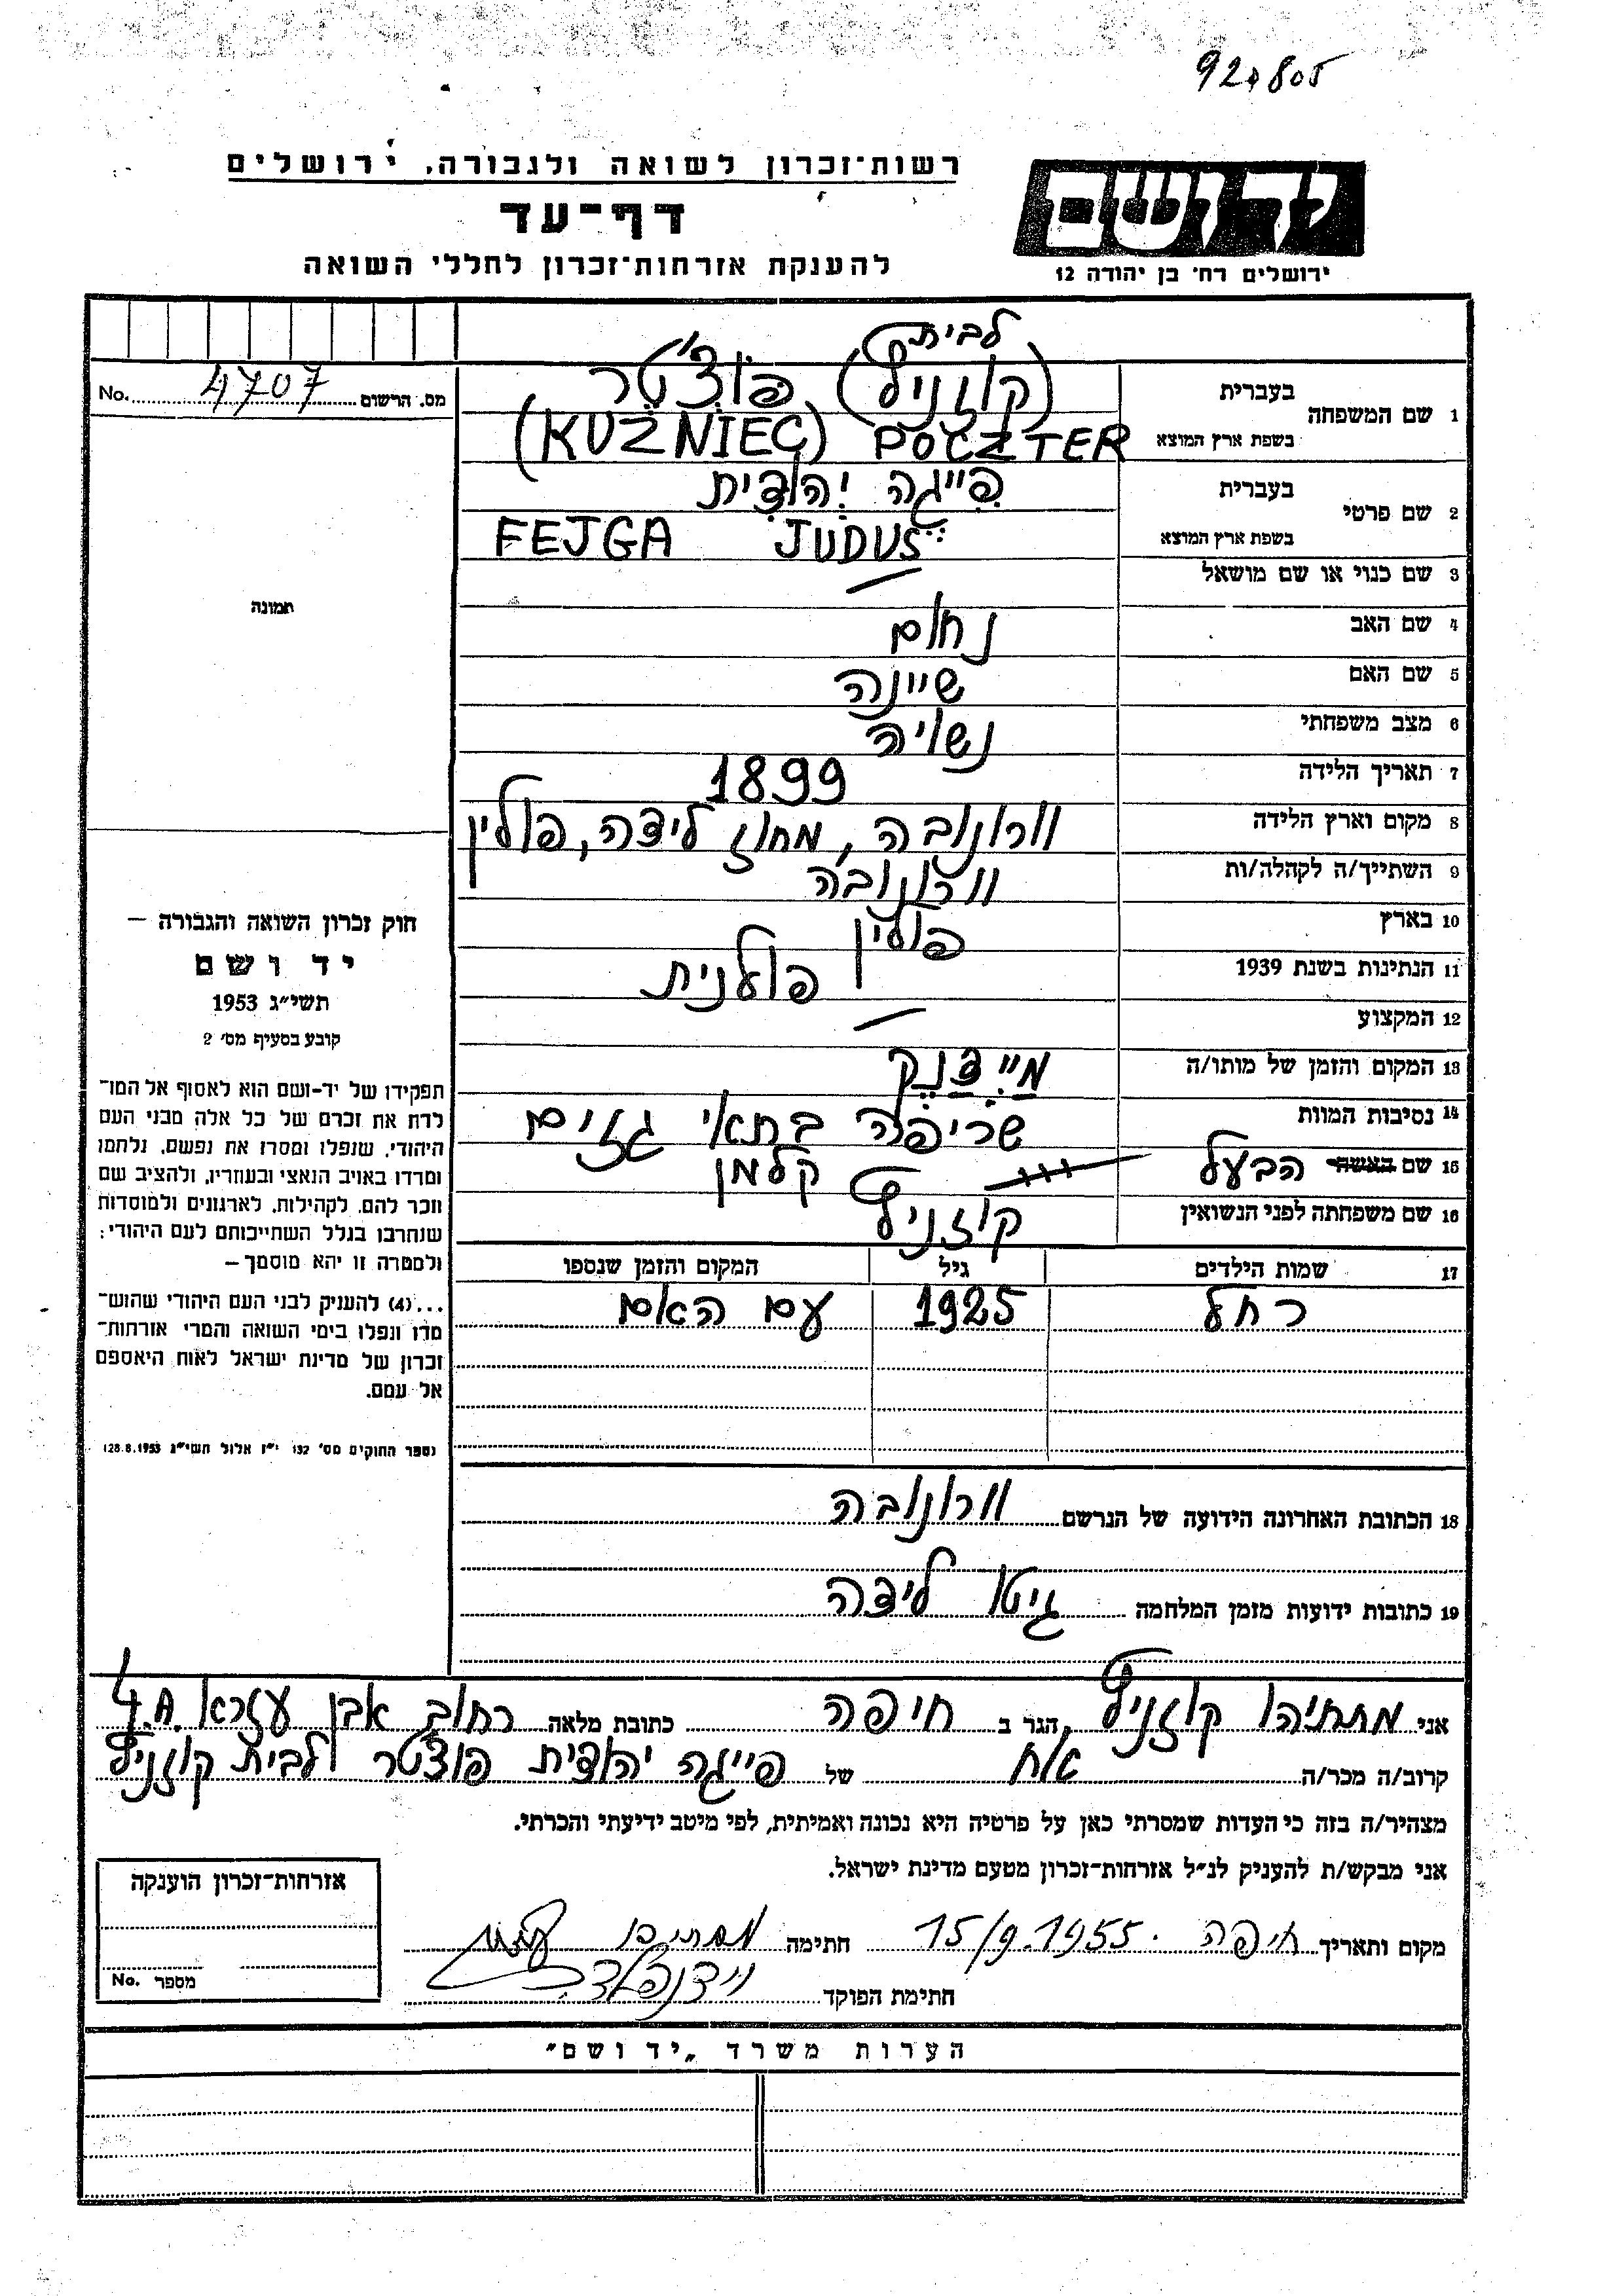 92,805
רשות־זכרון לשואה ולגבורה, ירושלים
דף־עד
להענקת אזרחות־זכרון לחללי השואה
יד ושם
ירושלים רח׳ בן יהודה 12
מס. הרשום 4707 No.
לבית
1 שם המשפחה בעברית (קוזניץ) פוצ׳טר
בשפת ארץ המוצא (KUŻNIEC) POCZTER
2 שם פרטי בעברית פייגה יהודית
בשפת ארץ המוצא FEJGA JUDUS
3 שם כנוי או שם מושאל —
4 שם האב נחום
5 שם האם שיינה
6 מצב משפחתי נשואה
7 תאריך הלידה 1899
8 מקום וארץ הלידה וורונובה, מחוז לידה, פולין
9 השתייך/ה לקהלה/ות וורונובה
10 בארץ פולין
11 הנתינות בשנת 1939 פולנית
12 המקצוע —
13 המקום והזמן של מותו/ה מיידנק
14 נסיבות המוות שריפה בתאי גזים
15 שם האשה הבעל קלמן
16 שם משפחתה לפני הנשואין קוזניץ
17 שמות הילדים גיל המקום והזמן שנספו
רחל 1925 עם האם
18 הכתובת האחרונה הידועה של הנרשם וורונובה
19 כתובות ידועות מזמן המלחמה גיטו לידה
תמונה
חוק זכרון השואה והגבורה —
יד ושם
תשי״ג 1953
קובע בסעיף מס׳ 2
תפקידו של יד-ושם הוא לאסוף אל המו־
לדת את זכרם של כל אלה מבני העם
היהודי, שנפלו ומסרו את נפשם, נלחמו
ומרדו באויב הנאצי ובעוזריו, ולהציב שם
וזכר להם, לקהילות, לארגונים ולמוסדות
שנחרבו בגלל השתייכותם לעם היהודי;
ולמטרה זו יהא מוסמך —
...(4) להעניק לבני העם היהודי שהוש־
מדו ונפלו בימי השואה והמרי אזרחות־
זכרון של מדינת ישראל לאות היאספם
אל עמם.
(ספר החוקים מס׳ 132 י״ז אלול תשי״ג 28.8.1953)
אני מתתיהו קוזניץ, הגר ב חיפה כתובת מלאה רחוב אבן עזרא 4.A
קרוב/ה מכר/ה אח של פייגה יהודית פוצטר לבית קוזניץ
מצהיר/ה בזה כי העדות שמסרתי כאן על פרטיה היא נכונה ואמיתית, לפי מיטב ידיעתי והכרתי.
אני מבקש/ת להעניק לנ״ל אזרחות־זכרון מטעם מדינת ישראל.
מקום ותאריך חיפה 15/9.1955 חתימה מתתיהו
חתימת הפוקד
אזרחות־זכרון הוענקה
מספר No.
הערות משרד „יד ושם״